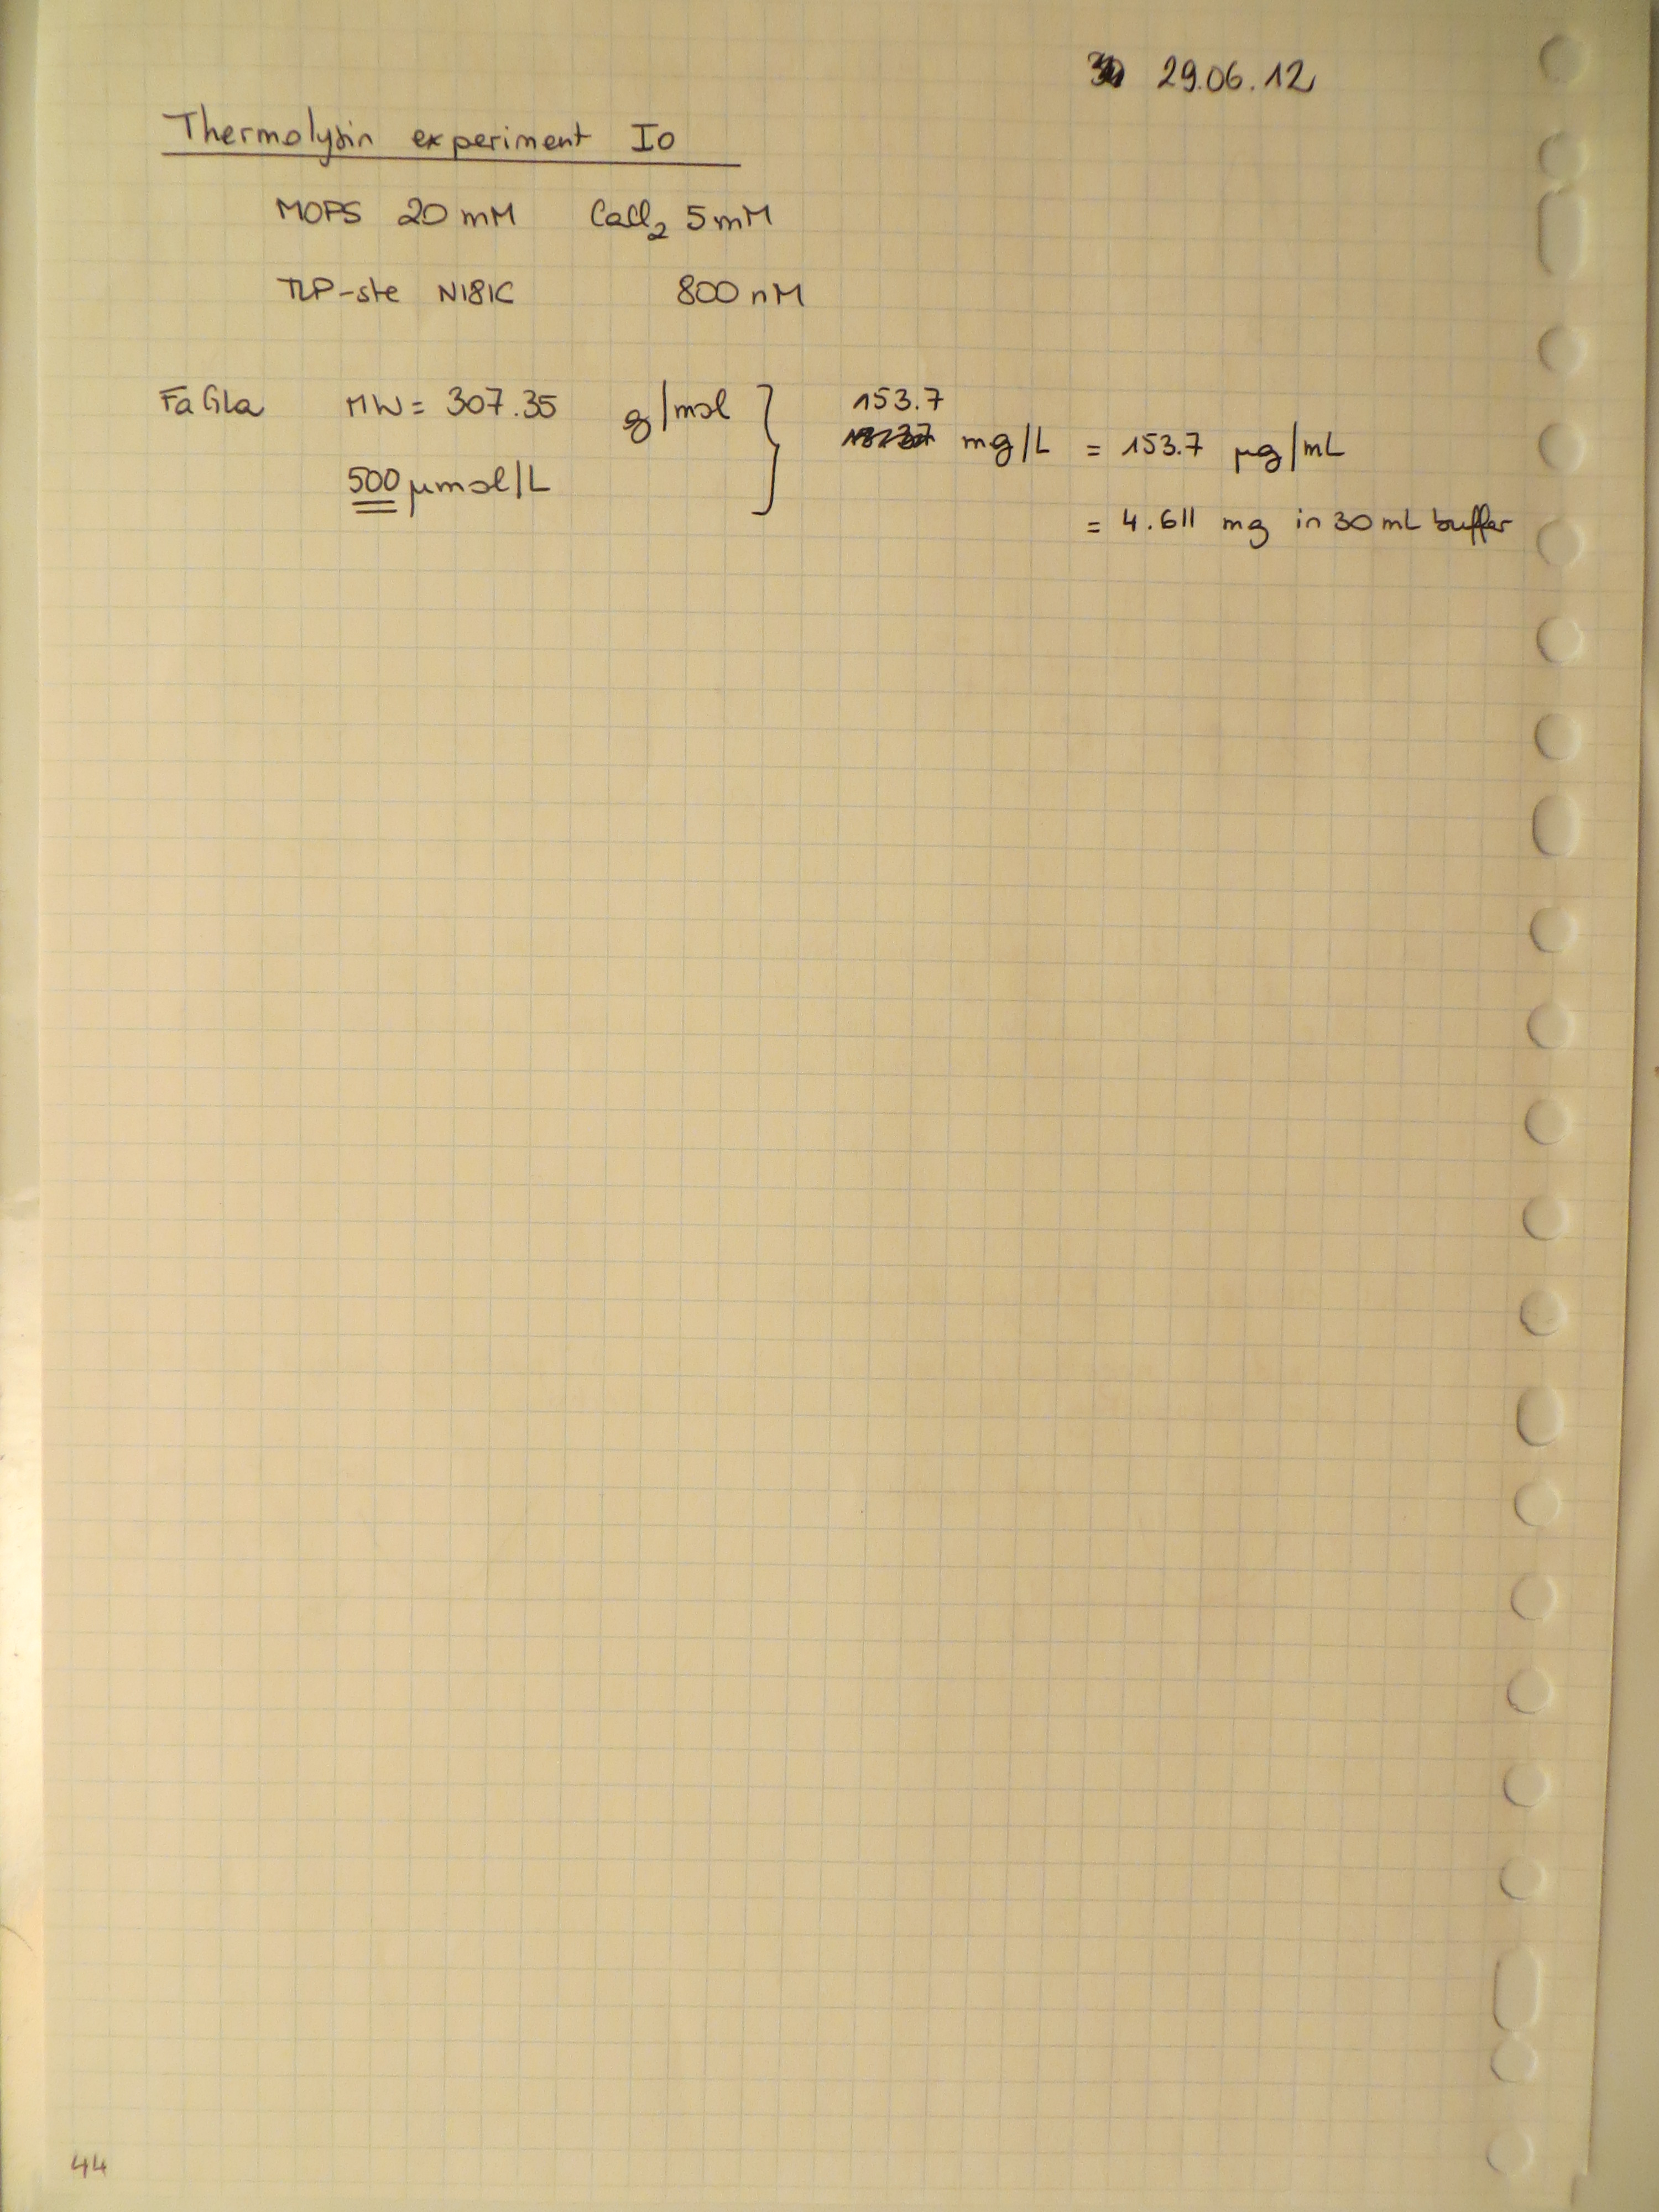 29.06.12
Thermolysin experiment I0
MOPS 20 mM CaCl₂ 5 mM
TLP-ste N181C 800 nM
FaGLa MW = 307.35 g/mol } 153.7
mg/L = 153.7 µg/mL
500 µmol/L
= 4.611 mg in 30 mL buffer
44